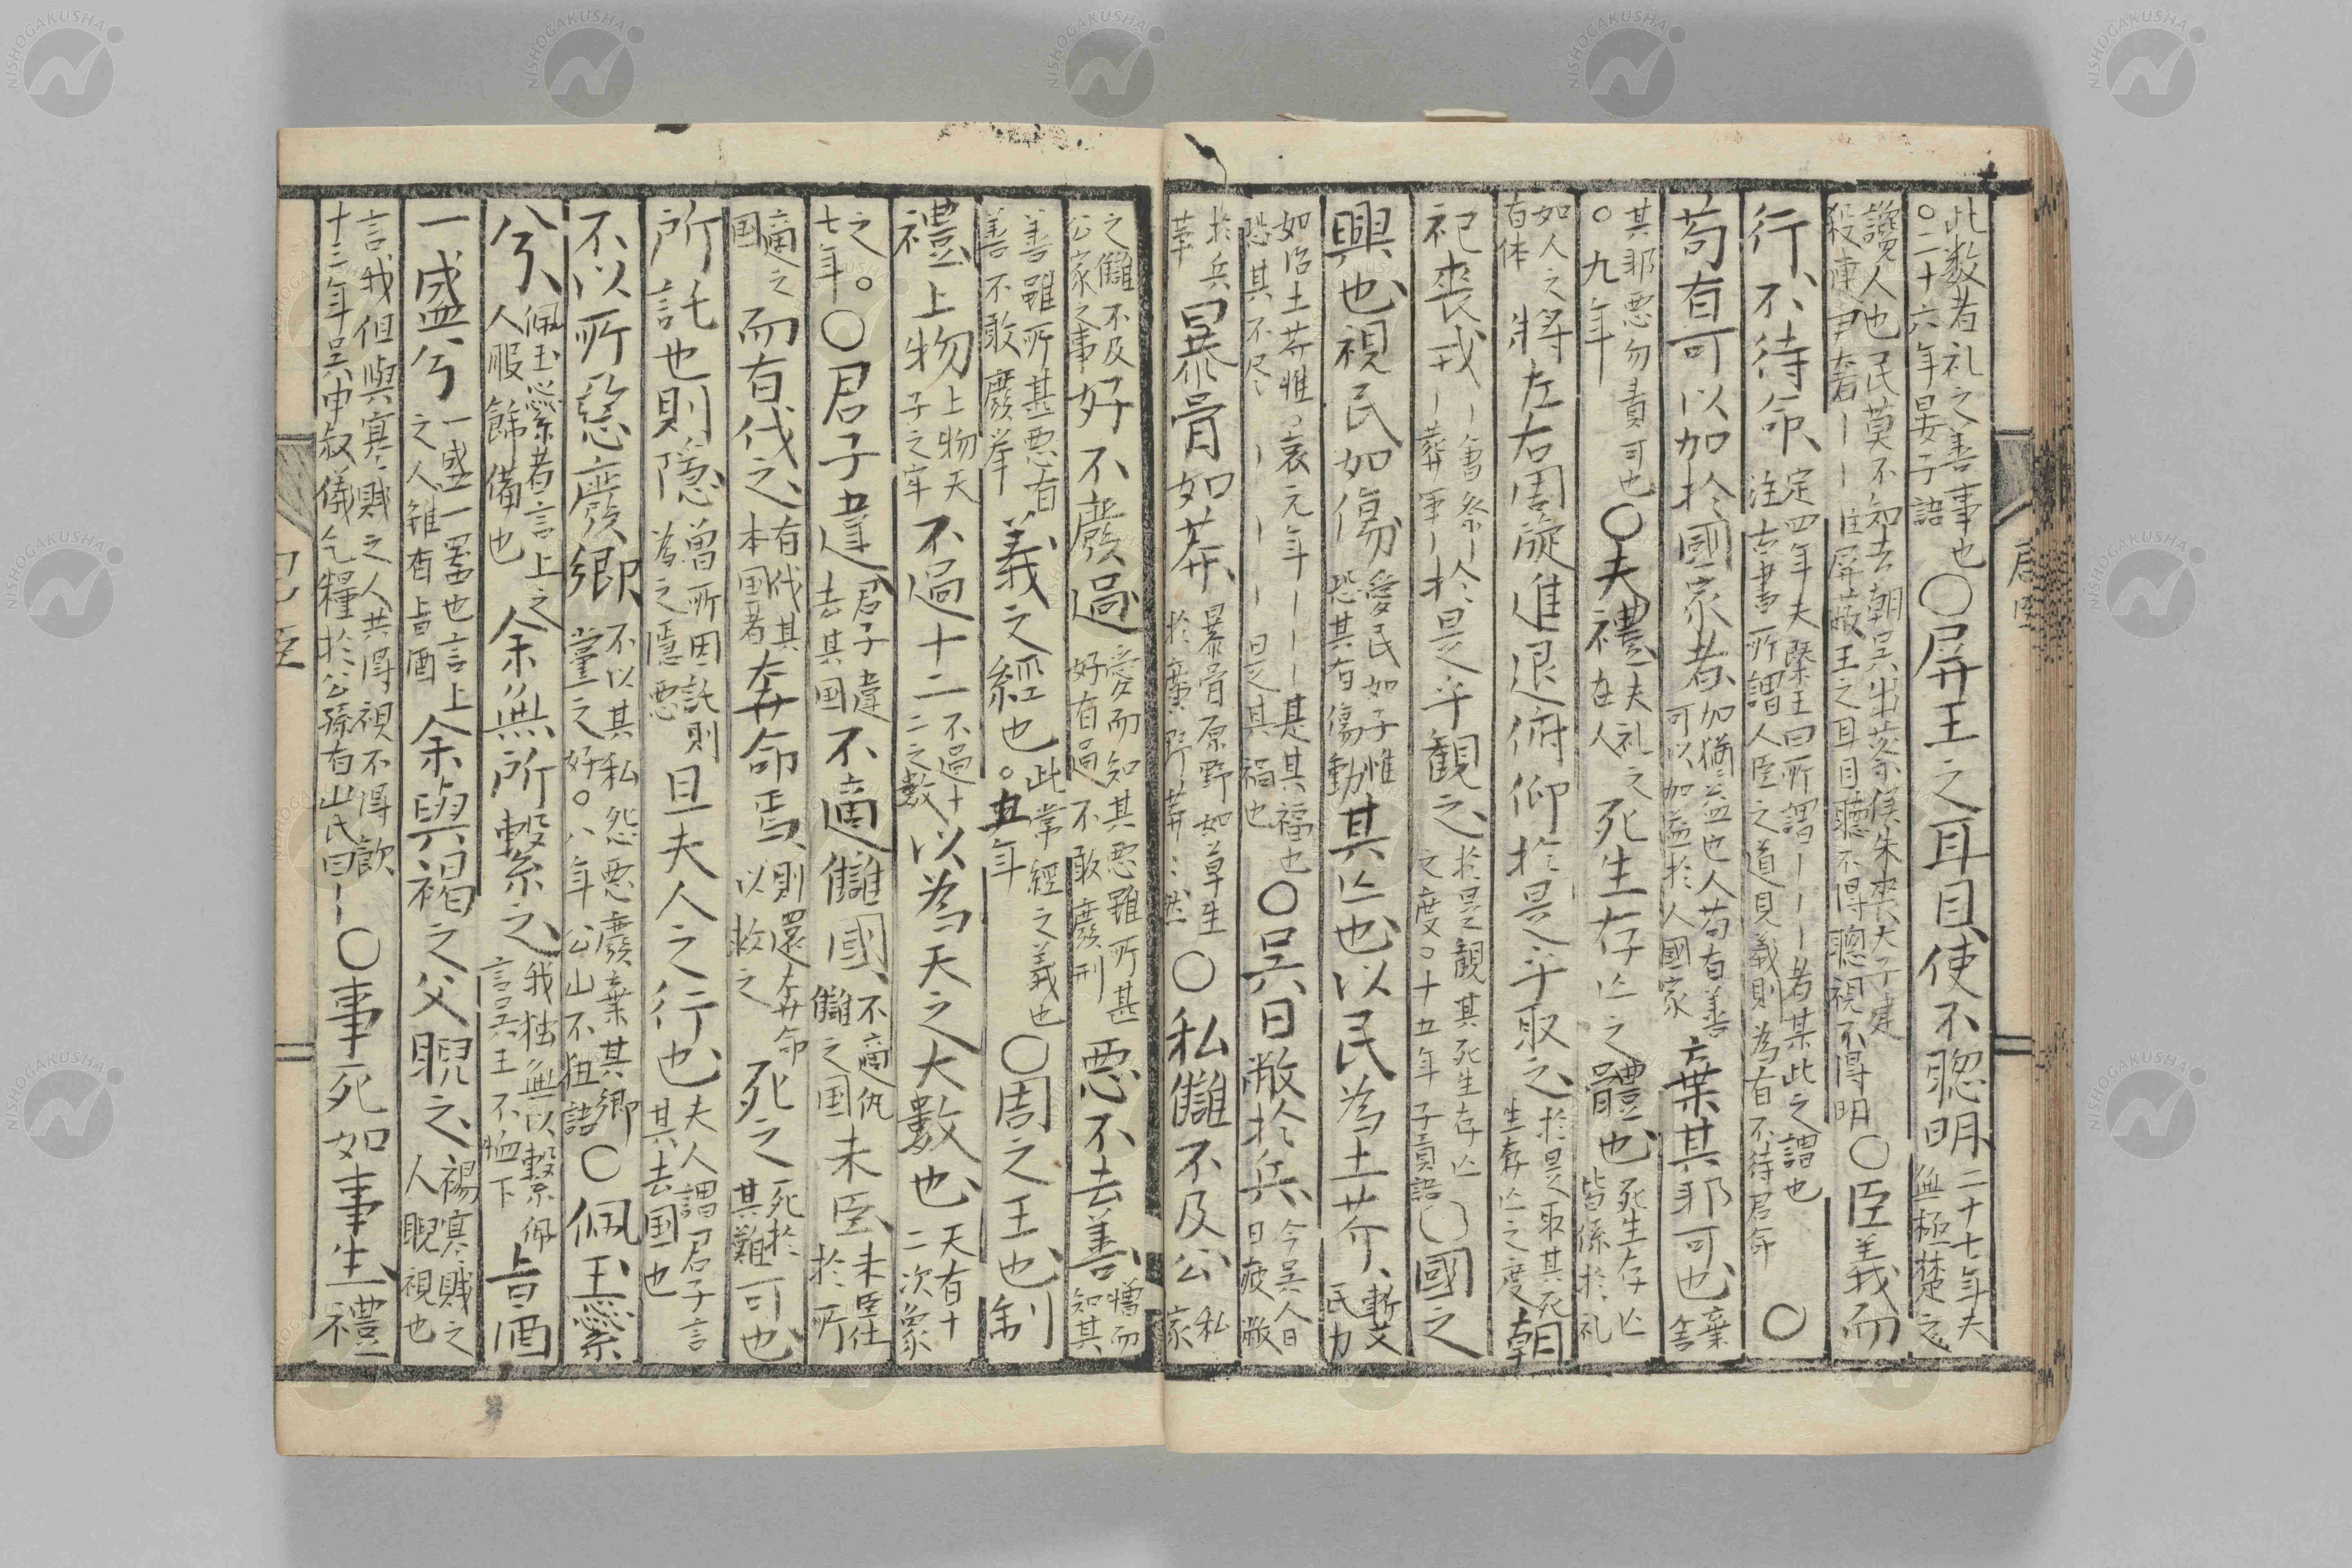 此数者礼之善事也
○二十六年晏子語
○屏王之耳目使不聡明
二十七年夫
無極楚之
讒人也民莫不知去朝吳出蔡侯朱喪大子建
殺連尹奢ーーー注屏蔽王之耳目聽不得聰視不得明
○臣義而
行不待命
定四年夫槩王曰所謂ーーー者某此之謂也
注古書所謂人臣之道見義則為有不待君命
○
苟有可以加於國家者
加猶益也人苟有善
可以加益於人國家
棄其邪可也
棄
舍
其邪悪勿責可也
○九年
○夫禮
夫礼之
在人
死生存亡之體也
死生存亡
皆係於礼
如人之
有体
将左右周旋進退俯仰於是乎取之
於是取其死
生存亡之度
朝
祀喪戎
ー會祭ー
ー葬軍ー
於是乎観之
於是観其死生存亡
之度○十五年子貢語
○國之
興也視民如傷
愛民如子惟
恐其有傷動
其亡也以民為土芥
斬艾
民力
如治土芥惟
恐其不尽
哀元年ーーー是其福也
ーーー是其禍也
○吳日敝於兵
今吳人日
日疲敝
於兵
革
暴骨如莽
暴骨原野如草生
於廣野莽〻然
○私讎不及公
私
家
之讎不及
公家之事
好不廢過
愛而知其悪雖所甚
好有過不敢廢刑
悪不去善
憎而
知其
善雖所甚悪有
善不敢廢挙
義之經也
此常經之義也
○五年
○周之王也制
禮上物
上物天
子之牢
不過十二
不過十
二之數
以為天之大數也
天有十
二次象
之○
七年
○君子違
君子違
去其国
不適讎國
不適仇
讎之国
未臣
未臣仕
於所
適之
国
而有伐之
有伐其
本国者
奔命焉
則還奔命
以救之
死之
死於
其難
可也
所託也則隠
曽所因託則
為之隠悪
且夫人之行也
夫人謂君子言
其去国也
不以所惡廢鄉
不以其私怨悪廢棄其鄉
黨之好○八年公山不狃語
○佩玉繠
兮
佩玉繠者言上之
人服餙備也
余無所繫之
我独無以繫佩
言吳王不恤下
旨酒
一盛兮
一盛一噐也言上
之人雖有旨酒
余與褐之父睨之
褐寒賎之
人睨視也
言我但與寒賎之人共得視不得飲
十三年吳申叔儀乞糧於公孫有山氏曰ー
○事死如事生禮